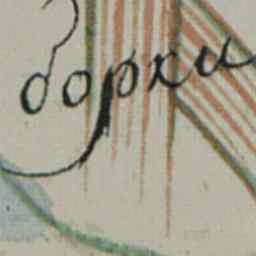 борки